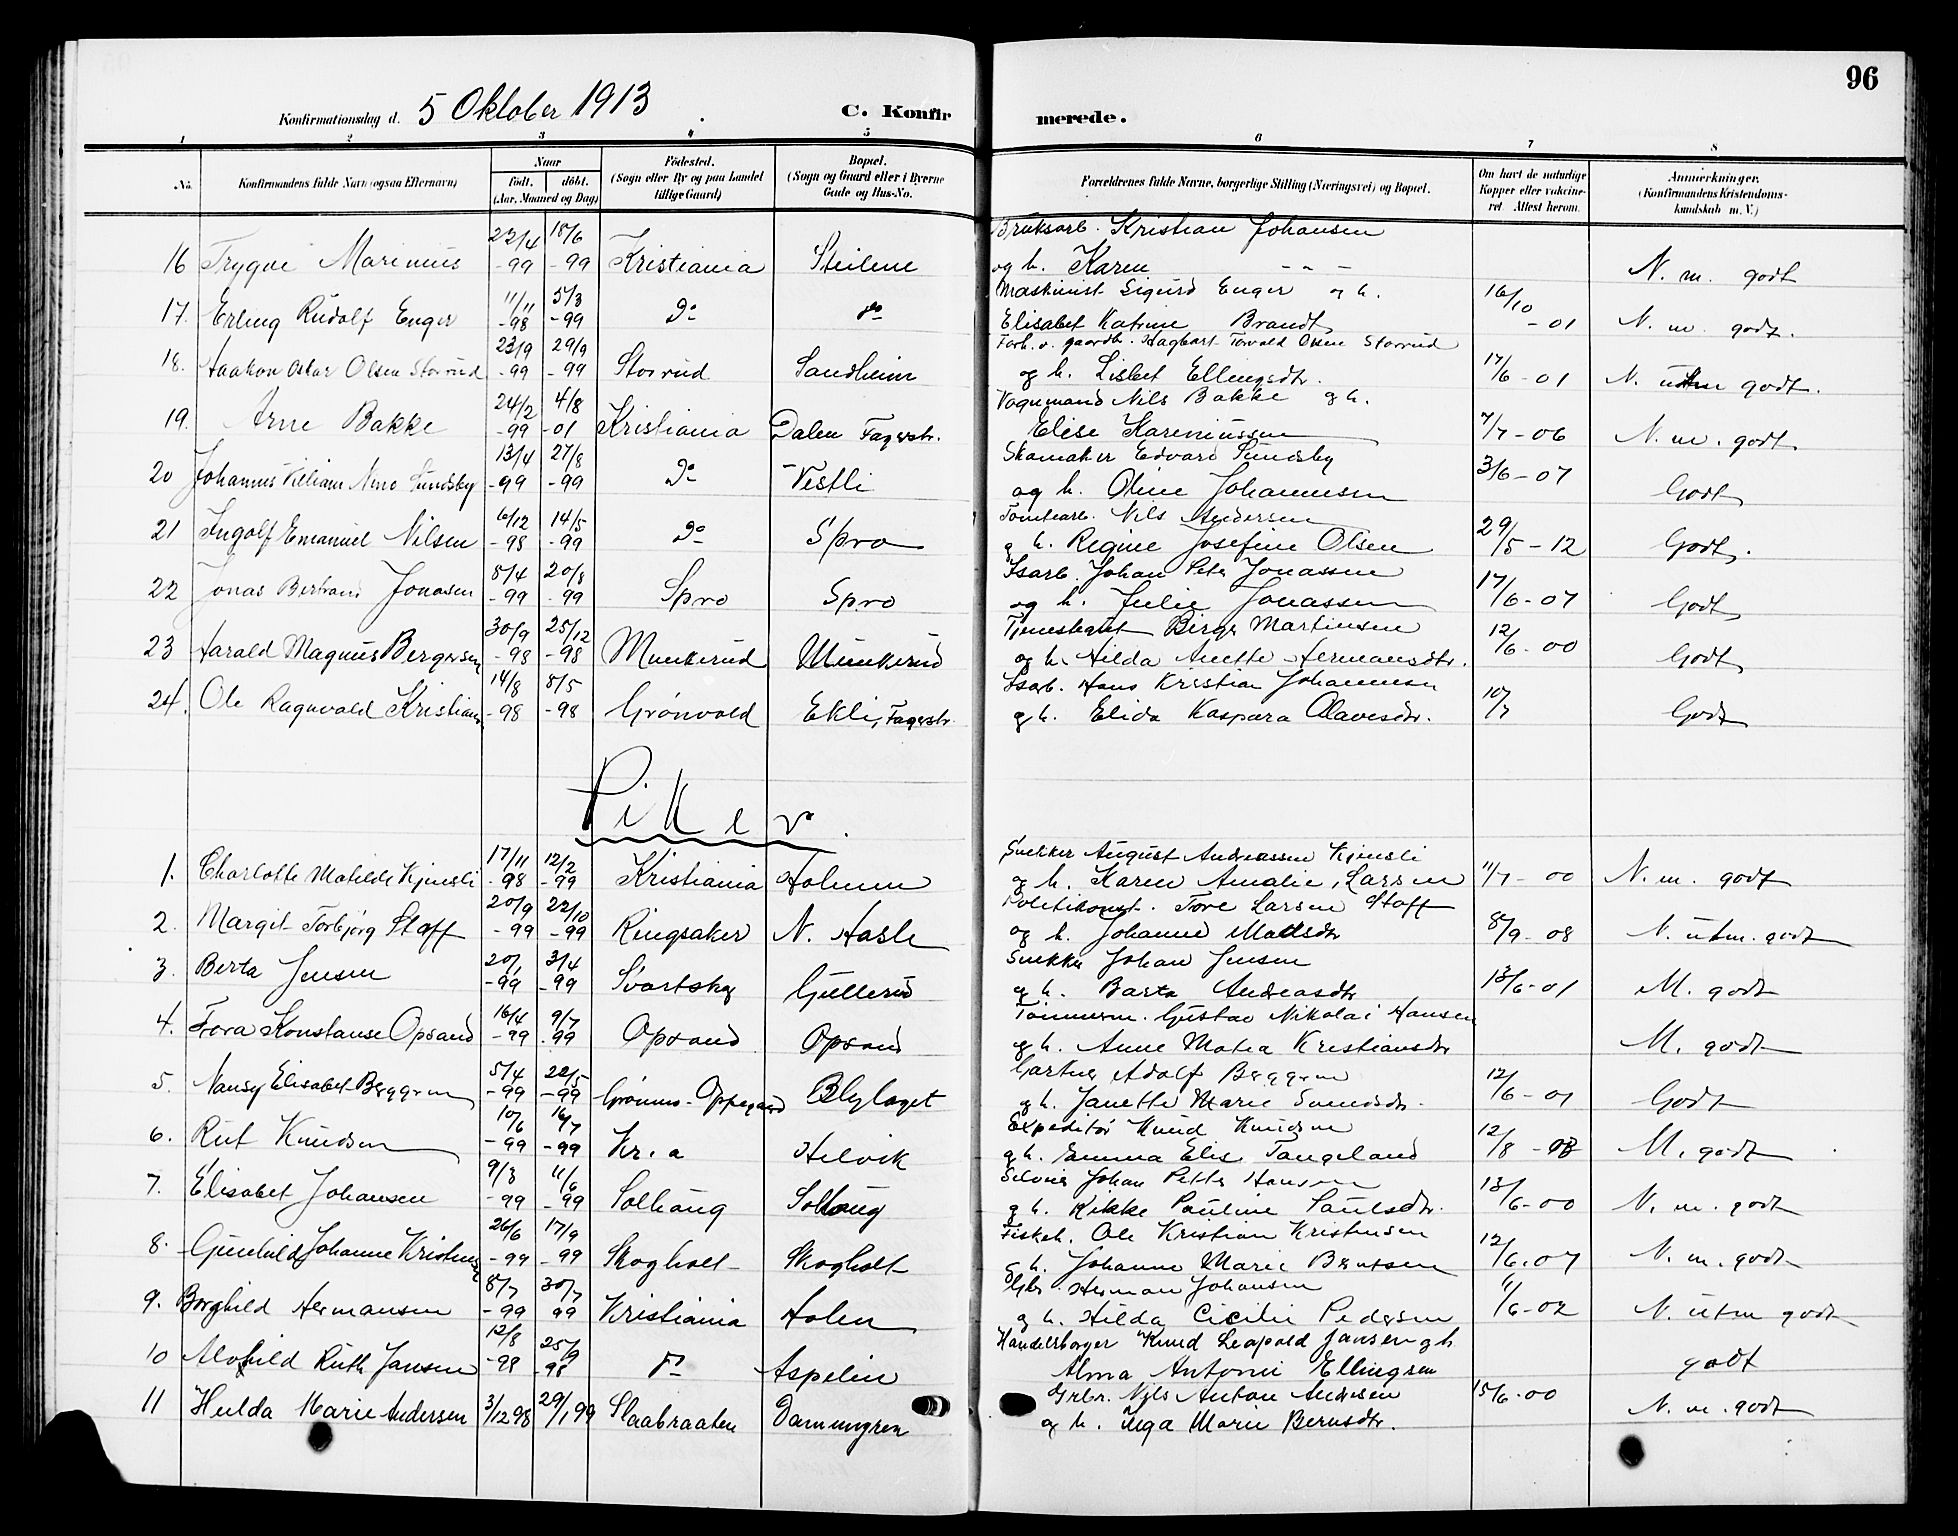 96
Konfirmationsdag d. 5 Oktober 1913 C. Konfirmerede.
1 2 3 4 5 6 7 8
No. Konfirmandens fulde Navn (ogsaa Efternavn) Naar født. døbt. (Aar, Maaned og Dag) Födested. (Sogn eller By og paa Landet tillige Gaard) Bopæl. (Sogn og Gaard eller i Byerne Gade og Hus-No. Forældrenes fulde Navne, borgerlige Stilling (Næringsvei) og Bopæl. Om havt de naturlige Kopper eller vakcineret. Attest herom. Anmerkninger. (Konfirmandens Kristendomskundskab m. V.)
16 Trygve Marinius 22/4 -99 18/6 -99 Kristiania Steilene Bruksarb. Kristian Johansen
og h. Karen - " - N. m. godt
17. Erling Rudolf Enger 11/11 -98 5/3 -99 Do do Maskinist Sigurd Enger og h.
Elisabet Katrine Brandt 16/10 -01 N. m. godt.
18. Haakon Oskar Olsen Storrud 23/9 -99 29/9 -99 Storrud Sandheim Forh.v. gaardb. Hagbart Torvald Olsen Storrud
og h. Lisbet Ellingsdtr. 17/6 -01 N. utm godt.
19. Arne Bakke 24/2 -99 4/8 -01 Kristiania Dalen Fagerstr. Vognmand Nils Bakke og h.
Elise Kareniussen 7/7 -06 N. m. godt
20 Johannes Villiam Arno Sundsby 13/4 -99 27/8 -99 Do Vestli Skomaker Edvard Sundsby
og h. Oline Johannesen 3/6 -07 Godt
21 Ingolf Emanuel Nilsen 6/12 -98 14/5 -99 Do Spro Tomtearb. Nils Andersen
og h. Regine Josefine Olsen 29/5 -12 Godt.
22 Jonas Bertrand Jonasen 8/4 -99 20/8 -99 Spro Spro Isarb. Johan Peter Jonassen
og h. Julie Jonassen 17/6 -07 Godt
23 Harald Magnus Bergersen 30/9 -98 25/12 -98 Munkerud Munkerud Tjenestegut Birger Martinsen
og h. Hilda Anette Hermansdtr. 12/6 -00 Godt
24. Ole Ragnvald Kristians. 14/8 -98 8/5 -98 Grönvold Ekli, Fagerstr. Isarb. Hans Kristian Johannesen
og h. Elida Kaspara Olavesdtr. 10/7 Godt
Piker.
1. Charlotte Matilde Kjensli 17/11 -98 12/2 -99 Kristiania Holmen Snekker August Andreassen Kjensli
og h. Karen Amalie Larsen 11/7 -00 N. m. godt
2. Margit Torbjörg Staff 20/9 -99 22/10 -99 Ringsaker N. Hasle Politikonst. Tore Larsen Staff
og h. Johanne Matsdtr 8/9 -08 N. utm. godt
3. Berta Jensen 20/1 -99 3/4 -99 Svartskog Gullerud Snekker Johan Jensen
og h. Berta Andreasdtr 13/6 -01 M. godt
4. Tora Konstanse Opsand 16/4 -99 9/7 -99 Opsand Opsand Tömmerm. Gustav Nikolai Hansen
og h. Anne Matea Kristiansdtr M. godt
5. Nansy Elisabet Berggren 5/4 -99 22/5 -99 Grönmo-Oppegaard Blylaget Gartner Adolf Berggren
og h. Janette Marie Svendsdtr. 12/6 -01 Godt
6. Rut Knudsen 10/6 -99 16/7 -99 Kr.a Helvik Expeditör Knud Knudsen
og h. Emma Elis Tangeland 12/8 -03 M. godt
7. Elisabet Johansen 9/3 -99 11/6 -99 Solhaug Solhaug Johan Petter Hansen
og h. Rikke Pauline Paulsdtr. 13/6 -00 N. m. godt
8. Gunhild Johanne Kristensen 26/6 -99 17/9 -99 Skogholt Skogholt Fiskeh. Ole Kristian Kristensen
og h. Johanne Marie Berntsen 12/6 -07 N. m. godt
9. Borghild Hermansen 8/7 -99 30/7 99 Kristiania Holen Gbr. Herman Johansen
og h. Hilda Cicilie Pedersen 11/6 -02 N. utm godt
10 Alvhild Ruth Jansen 12/8 -98 25/9 -98 Do Aspelin Handelsborger Knud Leopold Jansen og h.
Alma Antonie Ellingsen godt
11 Hulda Marie Andersen 3/12 98 29/1 99 Slaabraaten Dammengren Grbr. Nils Anton Andersen
og h. Inga Marie Berntsdtr. 15/6 -00 N. m. godt